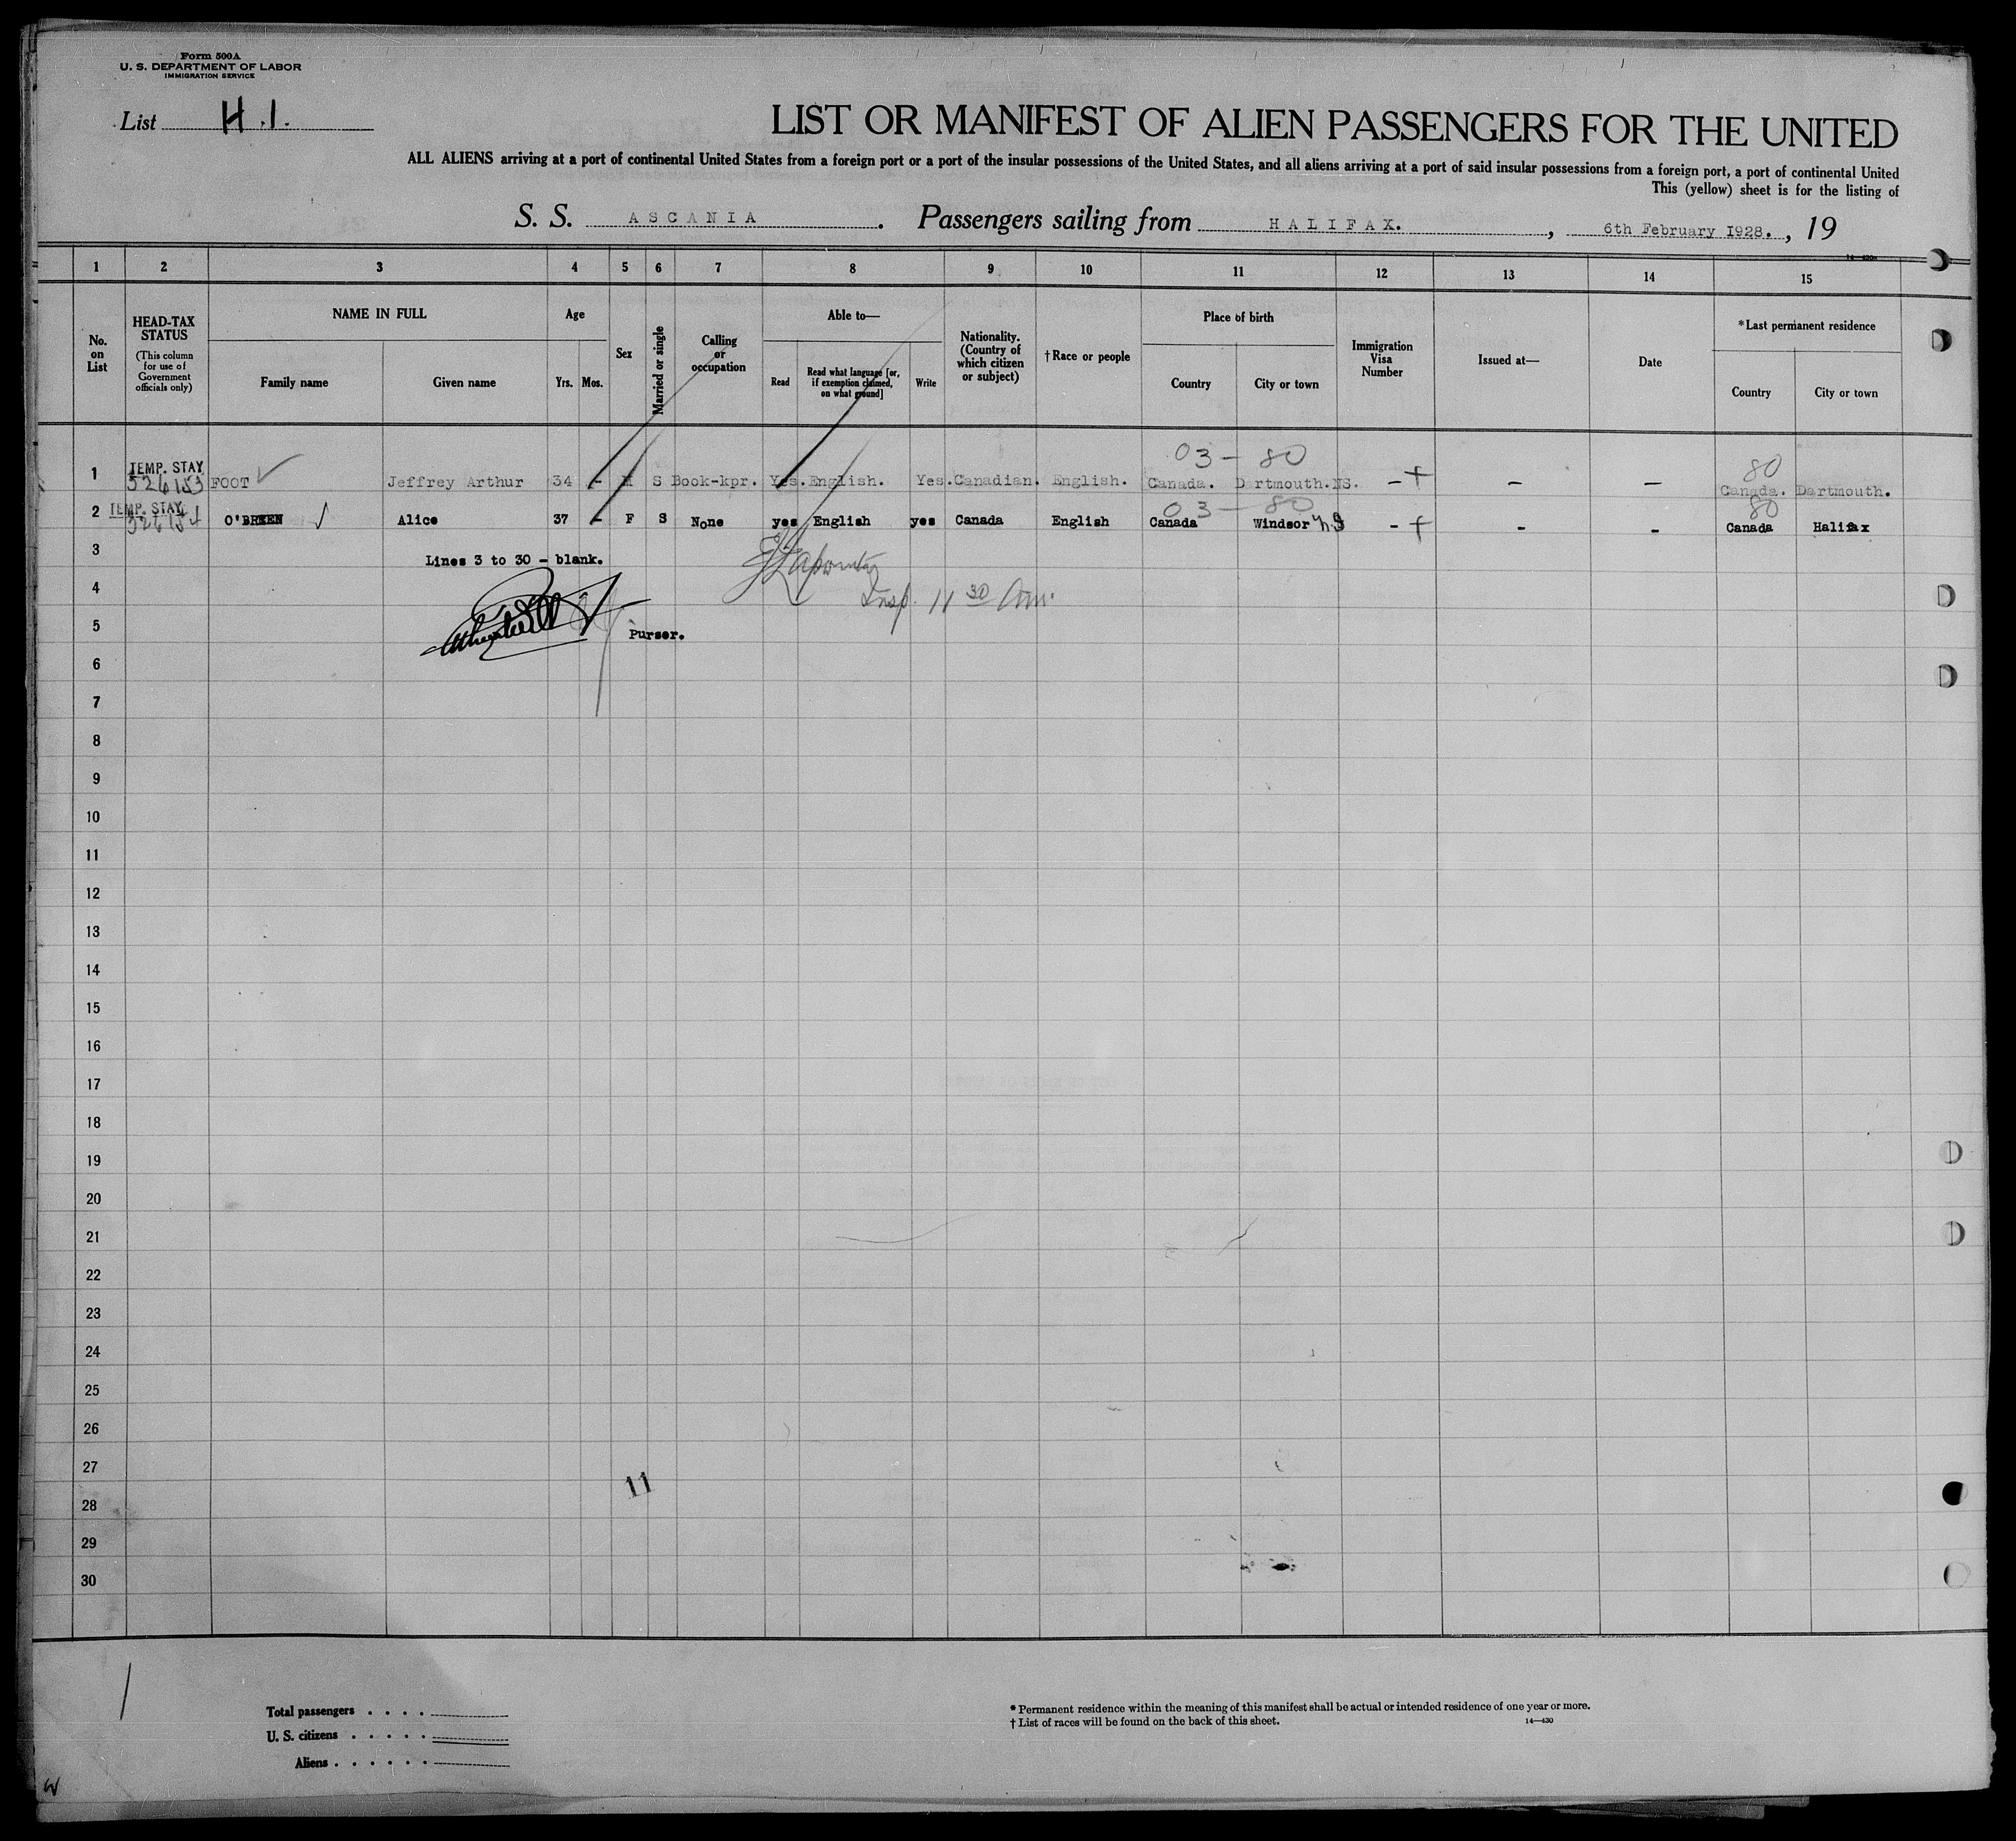 Form 500A
U. S. DEPARTMENT OF LABOR
IMMIGRATION SERVICE
List H.1.
LIST OR MANIFEST OF ALIEN PASSENGERS FOR THE UNITED
ALL ALIENS arriving at a port of continental United States from a foreign port or a port of the insular possessions of the United States, and all aliens arriving at a port of said insular possessions from a foreign port, a port of continental United
This (yellow) sheet is for the listing of
S. S. ASCANIA. Passengers sailing from HALIFAX., 6th February 1928., 19
14—430a
1 2 3 4 5 6 7 8 9 10 11 12 13 14 15
No. on List
HEAD-TAX STATUS
(This column for use of Government officials only)
NAME IN FULL
Family name
Given name
Age
Yrs. Mos.
Sex
Married or single
Calling or occupation
Able to—
Read
Read what language [or, if exemption claimed, on what ground]
Write
Nationality. (Country of which citizen or subject)
†Race or people
Place of birth
Country
City or town
Immigration Visa Number
Issued at—
Date
*Last permanent residence
Country
City or town
03 – 80
80
1 TEMP. STAY 526153 FOOT Jeffrey Arthur 34 – M S Book-kpr. Yes. English. Yes. Canadian. English. Canada. Dartmouth.NS. – + – – Canada. Dartmouth.
03 – 80
80
2 TEMP. STAY O'BREEN Alice 37 – F S None yes English yes Canada English Canada Windsor N.S – + – – Canada Halifax
3 Lines 3 to 30 – blank.
4 Insp. 11 30 Am.
5 Purser.
6
7
8
9
10
11
12
13
14
15
16
17
18
19
20
21
22
23
24
25
26
27
11
28
29
30
Total passengers . . . .
U. S. citizens . . . . .
Aliens . . . . . .
* Permanent residence within the meaning of this manifest shall be actual or intended residence of one year or more.
† List of races will be found on the back of this sheet.
14—430